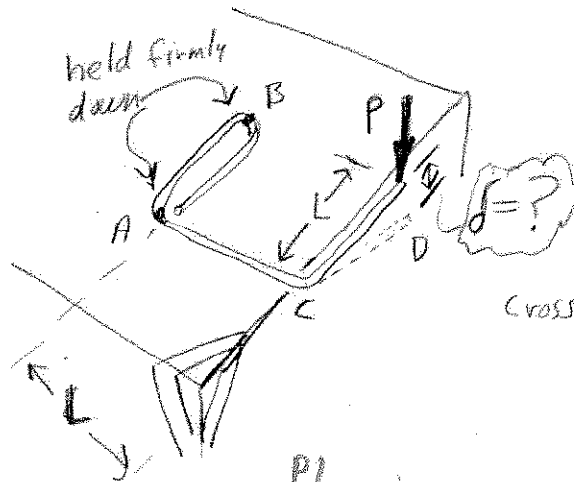 held firmly
down
B
P
A
L
δ=?
D
C
Cross
L
Pl